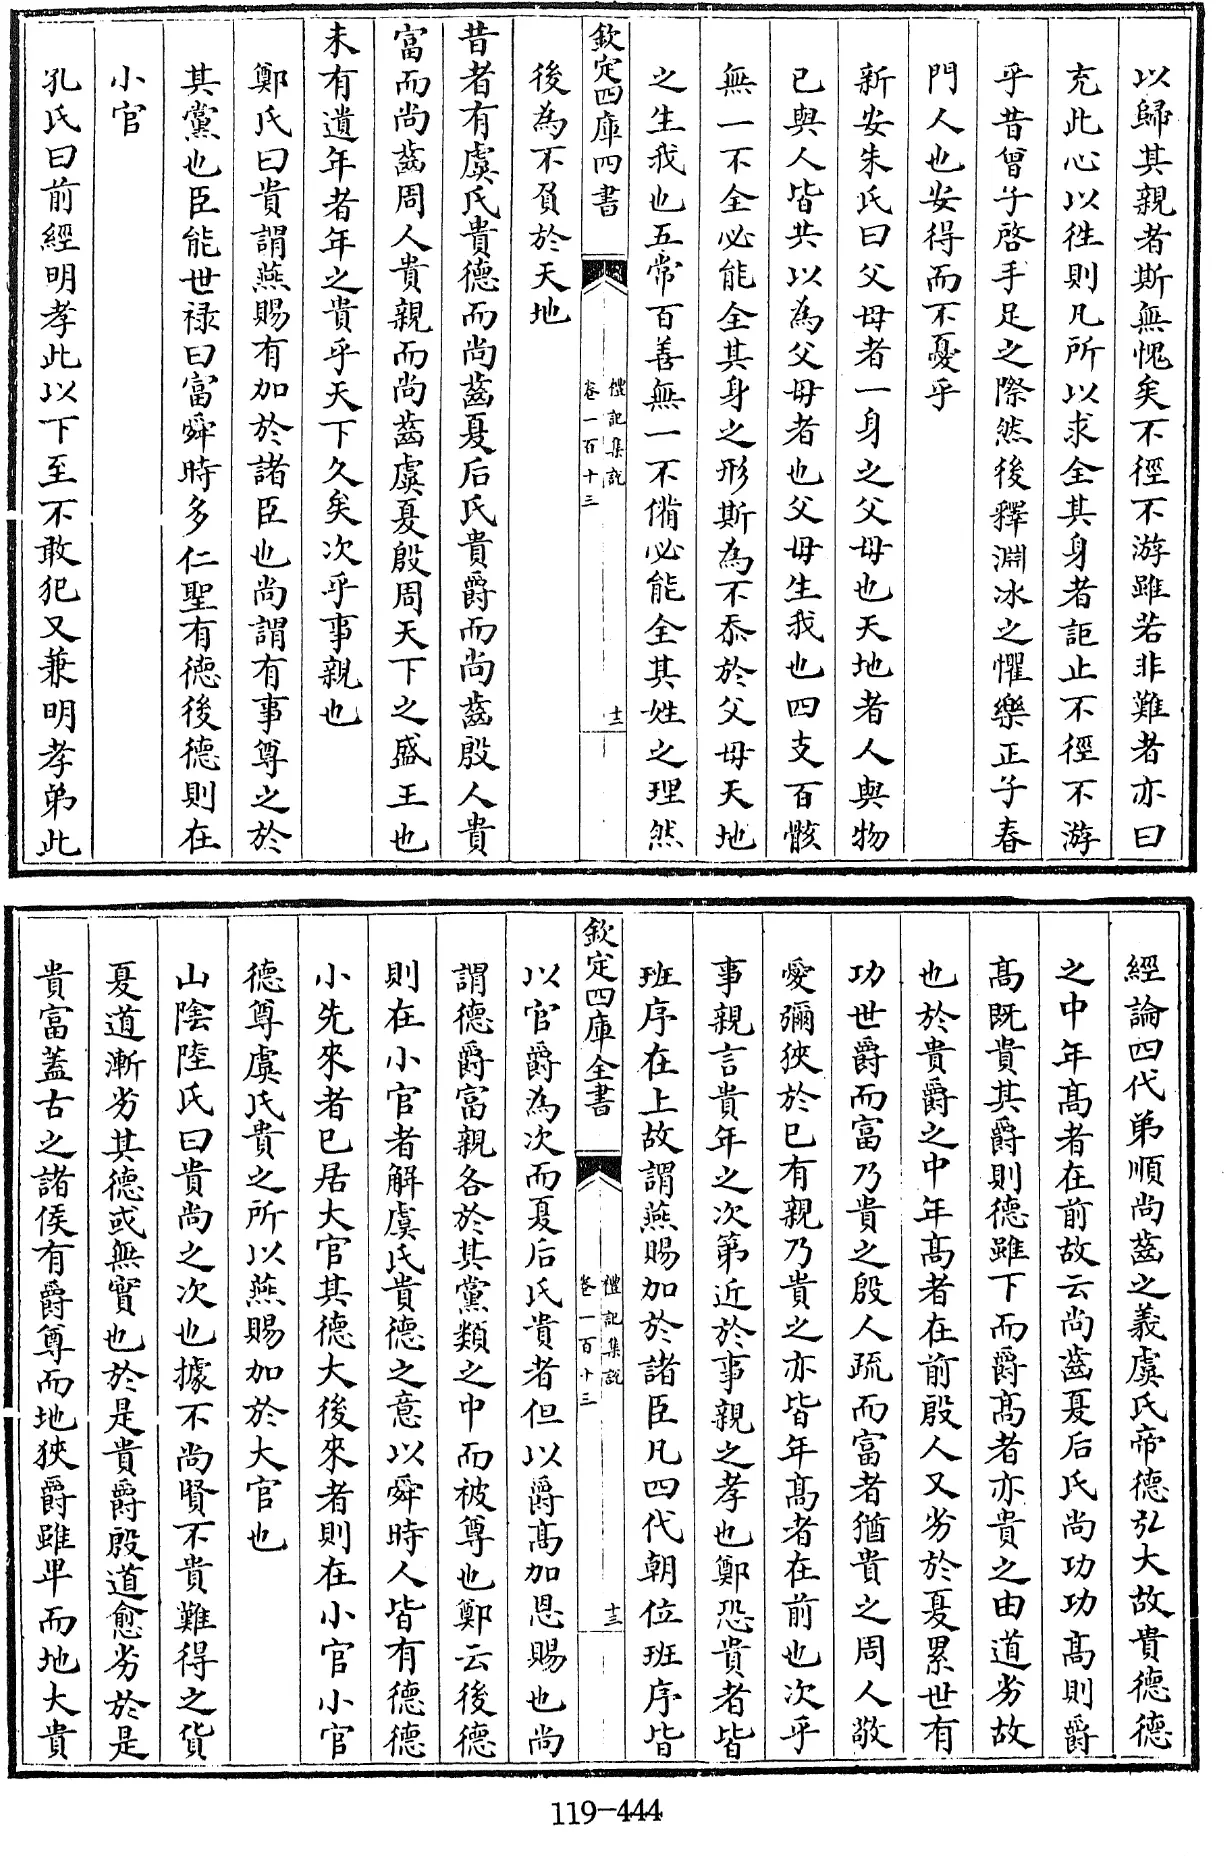 以歸其親者斯無愧矣不徑不游雖若非難者亦曰
充此心以徃則凡所以求全其身者詎止不徑不游
乎昔曾子啓手足之際然後釋淵冰之懼樂正子春
門人也安得而不憂乎
新安朱氏曰父母者一身之父母也天地者人與物
已與人皆共以為父母者也父母生我也四支百骸
無一不全必能全其身之形斯為不忝於父母天地
之生我也五常百善無一不備必能全其姓之理然
欽定四庫四書
禮記集說
卷一百十三
十二
後為不負於天地
昔者有虞氏貴德而尚齒夏后氏貴爵而尚齒殷人貴
富而尚齒周人貴親而尚齒虞夏殷周天下之盛王也
未有遺年者年之貴乎天下久矣次乎事親也
鄭氏曰貴謂燕賜有加於諸臣也尚謂有事尊之於
其黨也臣能世禄曰富舜時多仁聖有德後德則在
小官
孔氏曰前經明孝此以下至不敢犯又兼明孝弟此
經論四代弟順尚齒之義虞氏帝德弘大故貴德德
之中年髙者在前故云尚齒夏后氏尚功功髙則爵
髙既貴其爵則德雖下而爵髙者亦貴之由道劣故
也於貴爵之中年髙者在前殷人又劣於夏累世有
功世爵而富乃貴之殷人疏而富者猶貴之周人敬
愛彌狹於已有親乃貴之亦皆年髙者在前也次乎
事親言貴年之次第近於事親之孝也鄭恐貴者皆
班序在上故謂燕賜加於諸臣凡四代朝位班序皆
欽定四庫全書
禮記集說
卷一百十三
十三
以官爵為次而夏后氏貴者但以爵髙加恩賜也尚
謂德爵富親各於其黨類之中而被尊也鄭云後德
則在小官者解虞氏貴德之意以舜時人皆有德德
小先來者已居大官其德大後來者則在小官小官
德尊虞氏貴之所以燕賜加於大官也
山陰陸氏曰貴尚之次也據不尚賢不貴難得之貨
夏道漸劣其德或無實也於是貴爵殷道愈劣於是
貴富蓋古之諸侯有爵尊而地狹爵雖卑而地大貴
119-444